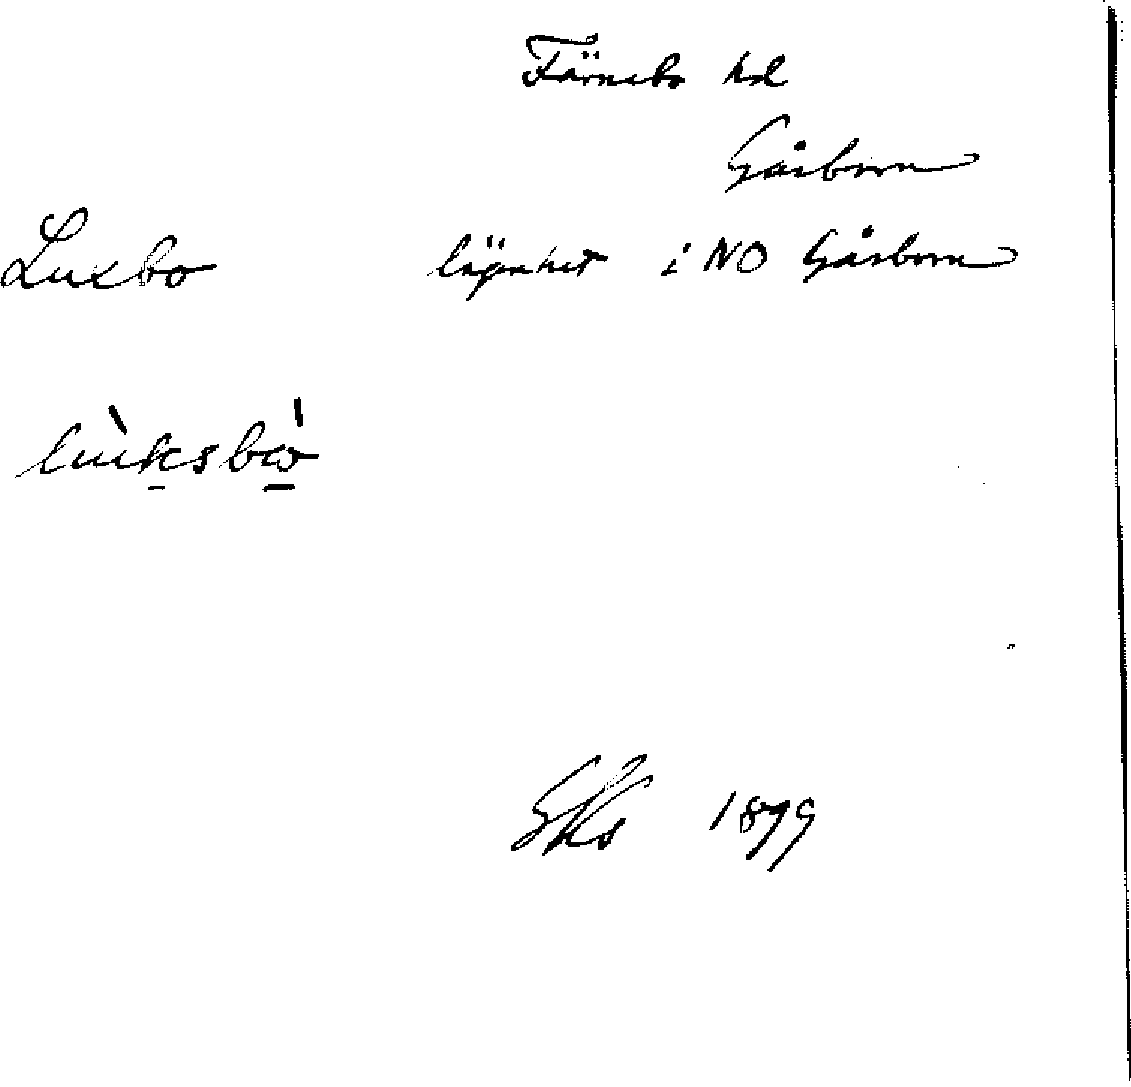 Färnebo hd
Gåsborn
Luxbo lägenhet i NO Gåsborn
lùksbò
GKs 1899